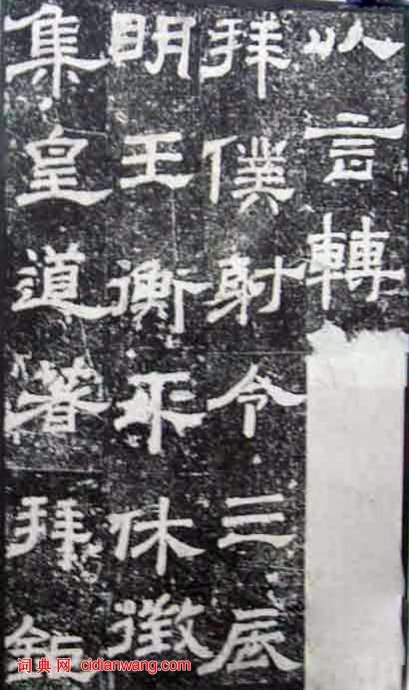 以言轉
拜僕射令三辰
明王衡平休徵
集皇道著拜鉅
词典网 cidianwang.com